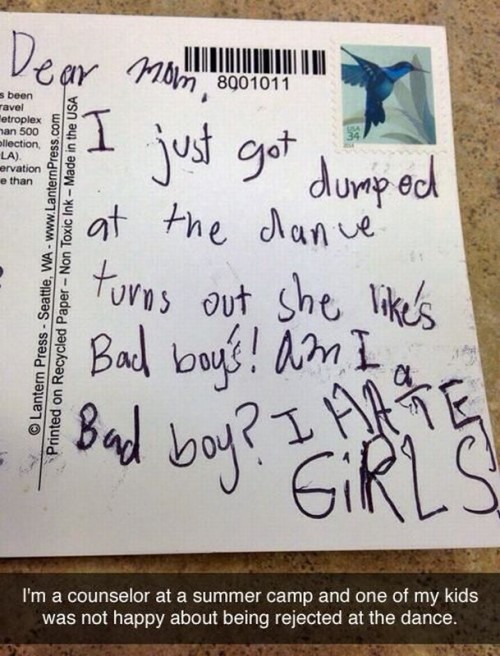 Dear mom,
8001011
USA
34
s been
ravel
etroplex
nan 500
ollection,
LA).
ervation
e than
© Lantern Press - Seattle, WA - www.LanternPress.com
Printed on Recycled Paper – Non Toxic Ink – Made in the USA
I just got
dumped
at the dance
turns out she like's
Bad boy's! Am I
a
Bad boy? I HATE
GiRLS
I'm a counselor at a summer camp and one of my kids
was not happy about being rejected at the dance.